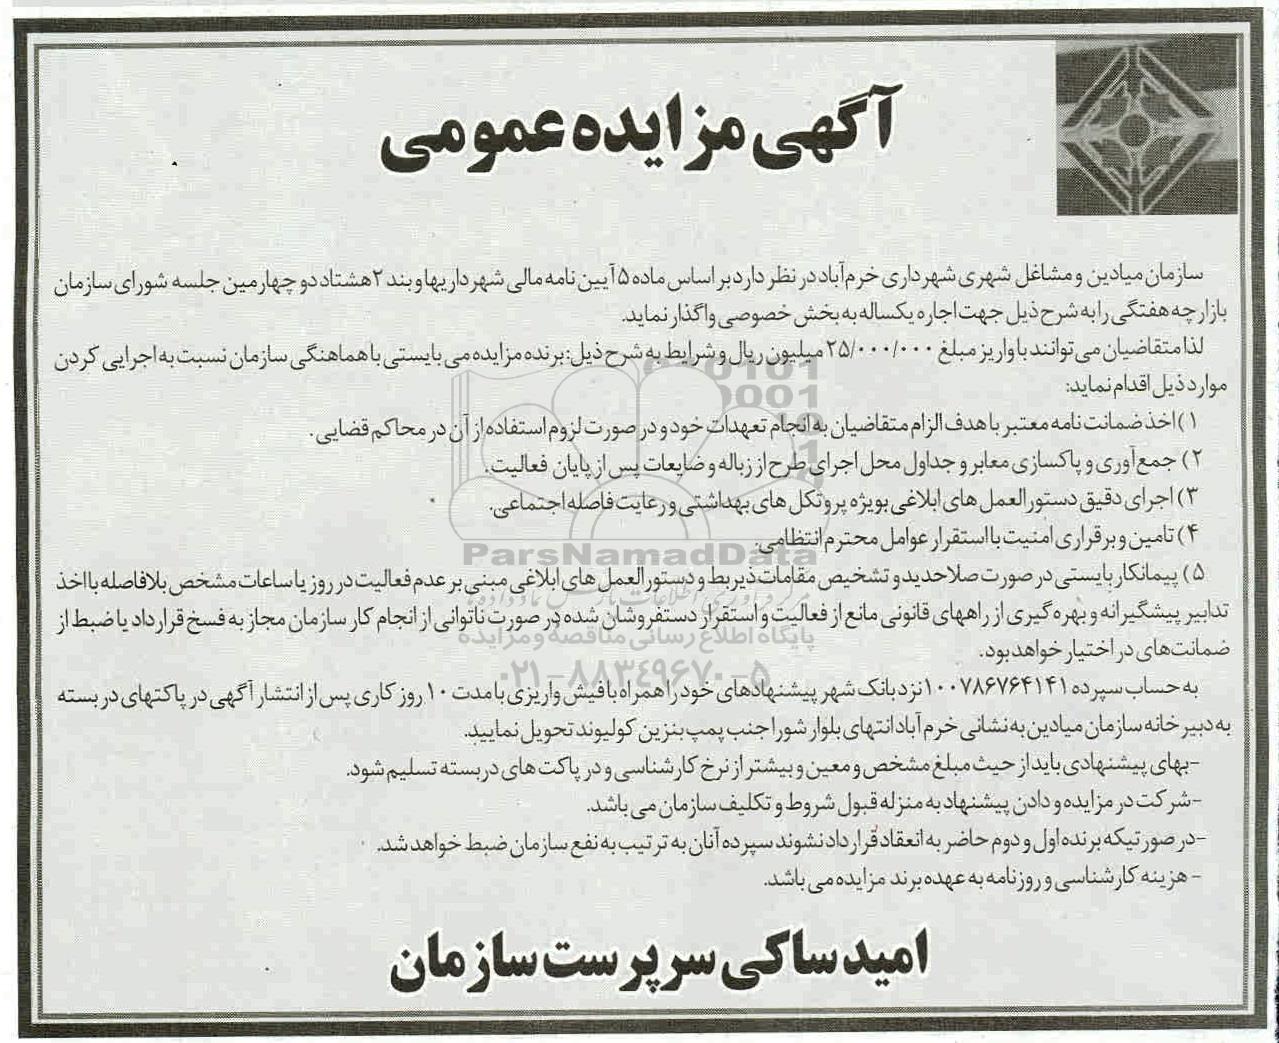 آگهی مزایده عمومی
سازمان میادین و مشاغل شهری شهرداری خرم‌آباد در نظر دارد بر اساس ماده ۵ آیین نامه مالی شهرداریها و بند ۲ هشتاد دو چهارمین جلسه شورای سازمان
بازارچه هفتگی را به شرح ذیل جهت اجاره یکساله به بخش خصوصی واگذار نماید.
لذا متقاضیان می‌توانند با واریز مبلغ ۲۵/۰۰۰/۰۰۰ میلیون ریال و شرایط به شرح ذیل: برنده مزایده می بایستی با هماهنگی سازمان نسبت به اجرایی کردن
موارد ذیل اقدام نماید:
۱) اخذ ضمانت نامه معتبر با هدف الزام متقاضیان به انجام تعهدات خود و در صورت لزوم استفاده از آن در محاکم قضایی.
۲) جمع‌آوری و پاکسازی معابر و جداول محل اجرای طرح از زباله و ضایعات پس از پایان فعالیت.
۳) اجرای دقیق دستورالعمل های ابلاغی بویژه پروتکل های بهداشتی و رعایت فاصله اجتماعی.
۴) تامین و برقراری امنیت با استقرار عوامل محترم انتظامی.
ParsNamadData
۵) پیمانکار بایستی در صورت صلاحدید و تشخیص مقامات ذیربط و دستورالعمل های ابلاغی مبنی بر عدم فعالیت در روز یا ساعات مشخص بلافاصله با اخذ
تدابیر پیشگیرانه و بهره گیری از راههای قانونی مانع از فعالیت و استقرار دستفروشان شده در صورت ناتوانی از انجام کار سازمان مجاز به فسخ قرارداد یا ضبط از
پایگاه اطلاع رسانی مناقصه و مزایده
ضمانت‌های در اختیار خواهد بود.
۰۲۱-۸۸۳۴۹۶۷۰-۵
به حساب سپرده ۱۰۰۷۸۶۷۶۴۱۴۱ نزد بانک شهر پیشنهادهای خود را همراه با فیش واریزی با مدت ۱۰ روز کاری پس از انتشار آگهی در پاکتهای در بسته
به دبیرخانه سازمان میادین به نشانی خرم آباد انتهای بلوار شورا جنب پمپ بنزین کولیوند تحویل نمایید.
-بهای پیشنهادی باید از حیث مبلغ مشخص و معین و بیشتر از نرخ کارشناسی و در پاکت های دربسته تسلیم شود.
-شرکت در مزایده و دادن پیشنهاد به منزله قبول شروط و تکلیف سازمان می باشد.
-در صورتیکه برنده اول و دوم حاضر به انعقاد قرارداد نشوند سپرده آنان به ترتیب به نفع سازمان ضبط خواهد شد.
- هزینه کارشناسی و روزنامه به عهده برند مزایده می باشد.
امید ساکی سرپرست سازمان